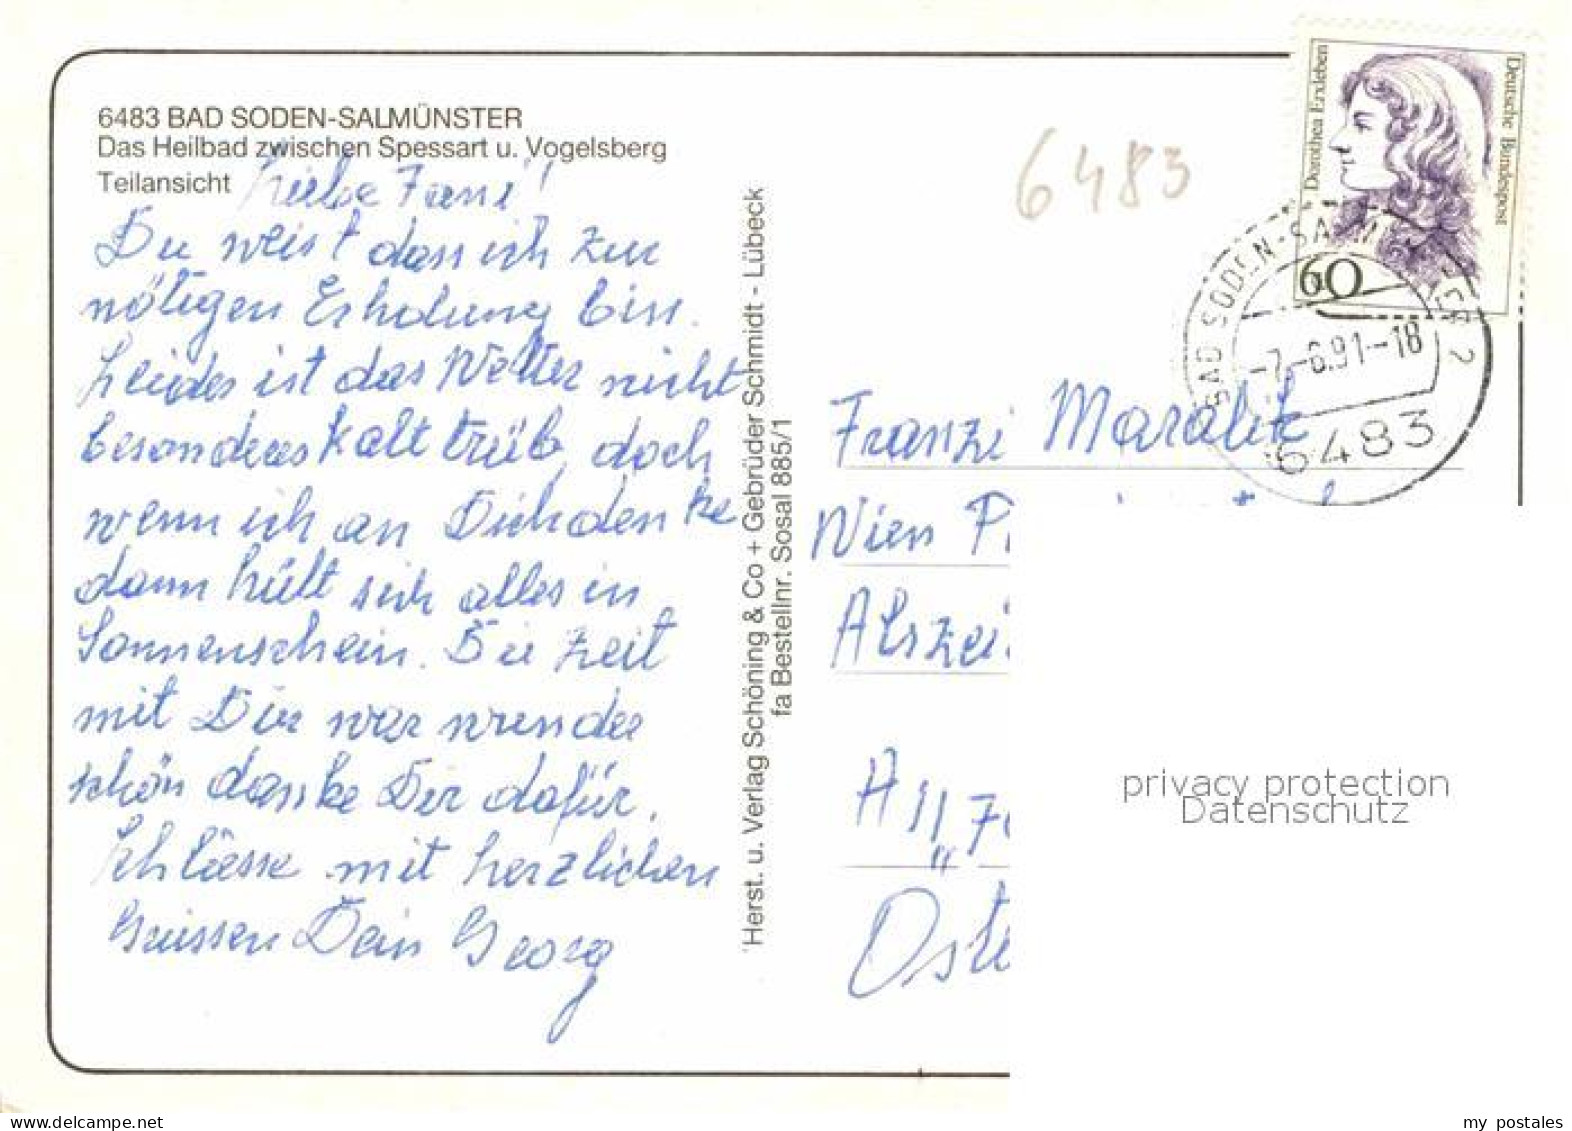 6483 BAD SODEN-SALMÜNSTER
Das Heilbad zwischen Spessart u. Vogelsberg
Teilansicht
Liebe Fani!
Du weist dass ich zur
nötigen Erholung bin.
Leider ist das Wetter nicht
besonderes kalt trüb, doch
wenn ich an Dich denke
dann hüllt sich alles in
Sonnenschein. Die Zeit
mit Dir war wunder
schön danke Dir dafür.
Schliesse mit herzlichen
Grüssen Dein Georg
Herst. u. Verlag Schöning & Co + Gebrüder Schmidt - Lübeck
fa Bestellnr. Sosal 885/1
6483
Dorothea Erxleben
Deutsche Bundespost
60
BAD SODEN-SALMÜNSTER 2
-7.-6.91-18
6483
Franzi Maralik
Wien
Alszei
A
Öste
privacy protection
Datenschutz
my postales